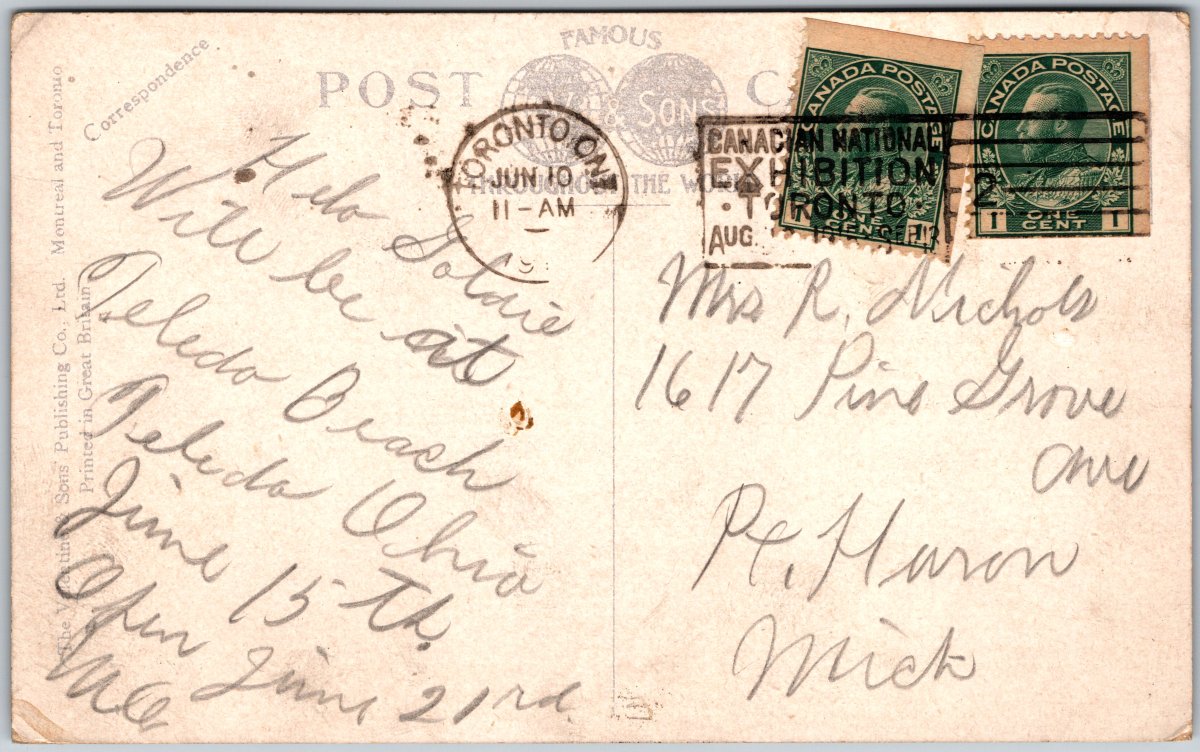 Correspondence
POST
FAMOUS
& SONS
THROUGHOUT THE WORLD
TORONTO, ONT
JUN 10
11-AM
CANADIAN NATIONAL
EXHIBITION
TORONTO
AUG.
2
CANADA POSTAGE
ONE
CENT
1
CANADA POSTAGE
1 ONE 1
CENT
Helo Goldie
Will be at
Teledo Beach
Teledo Ohio
June 15 th.
Open June 21rd
Mrs R. Nichols
1617 Pine Grove
Ave
Pt. Huron
Mich
The Valentine & Sons Publishing Co., Ltd. Montreal and Toronto
Printed in Great Britain